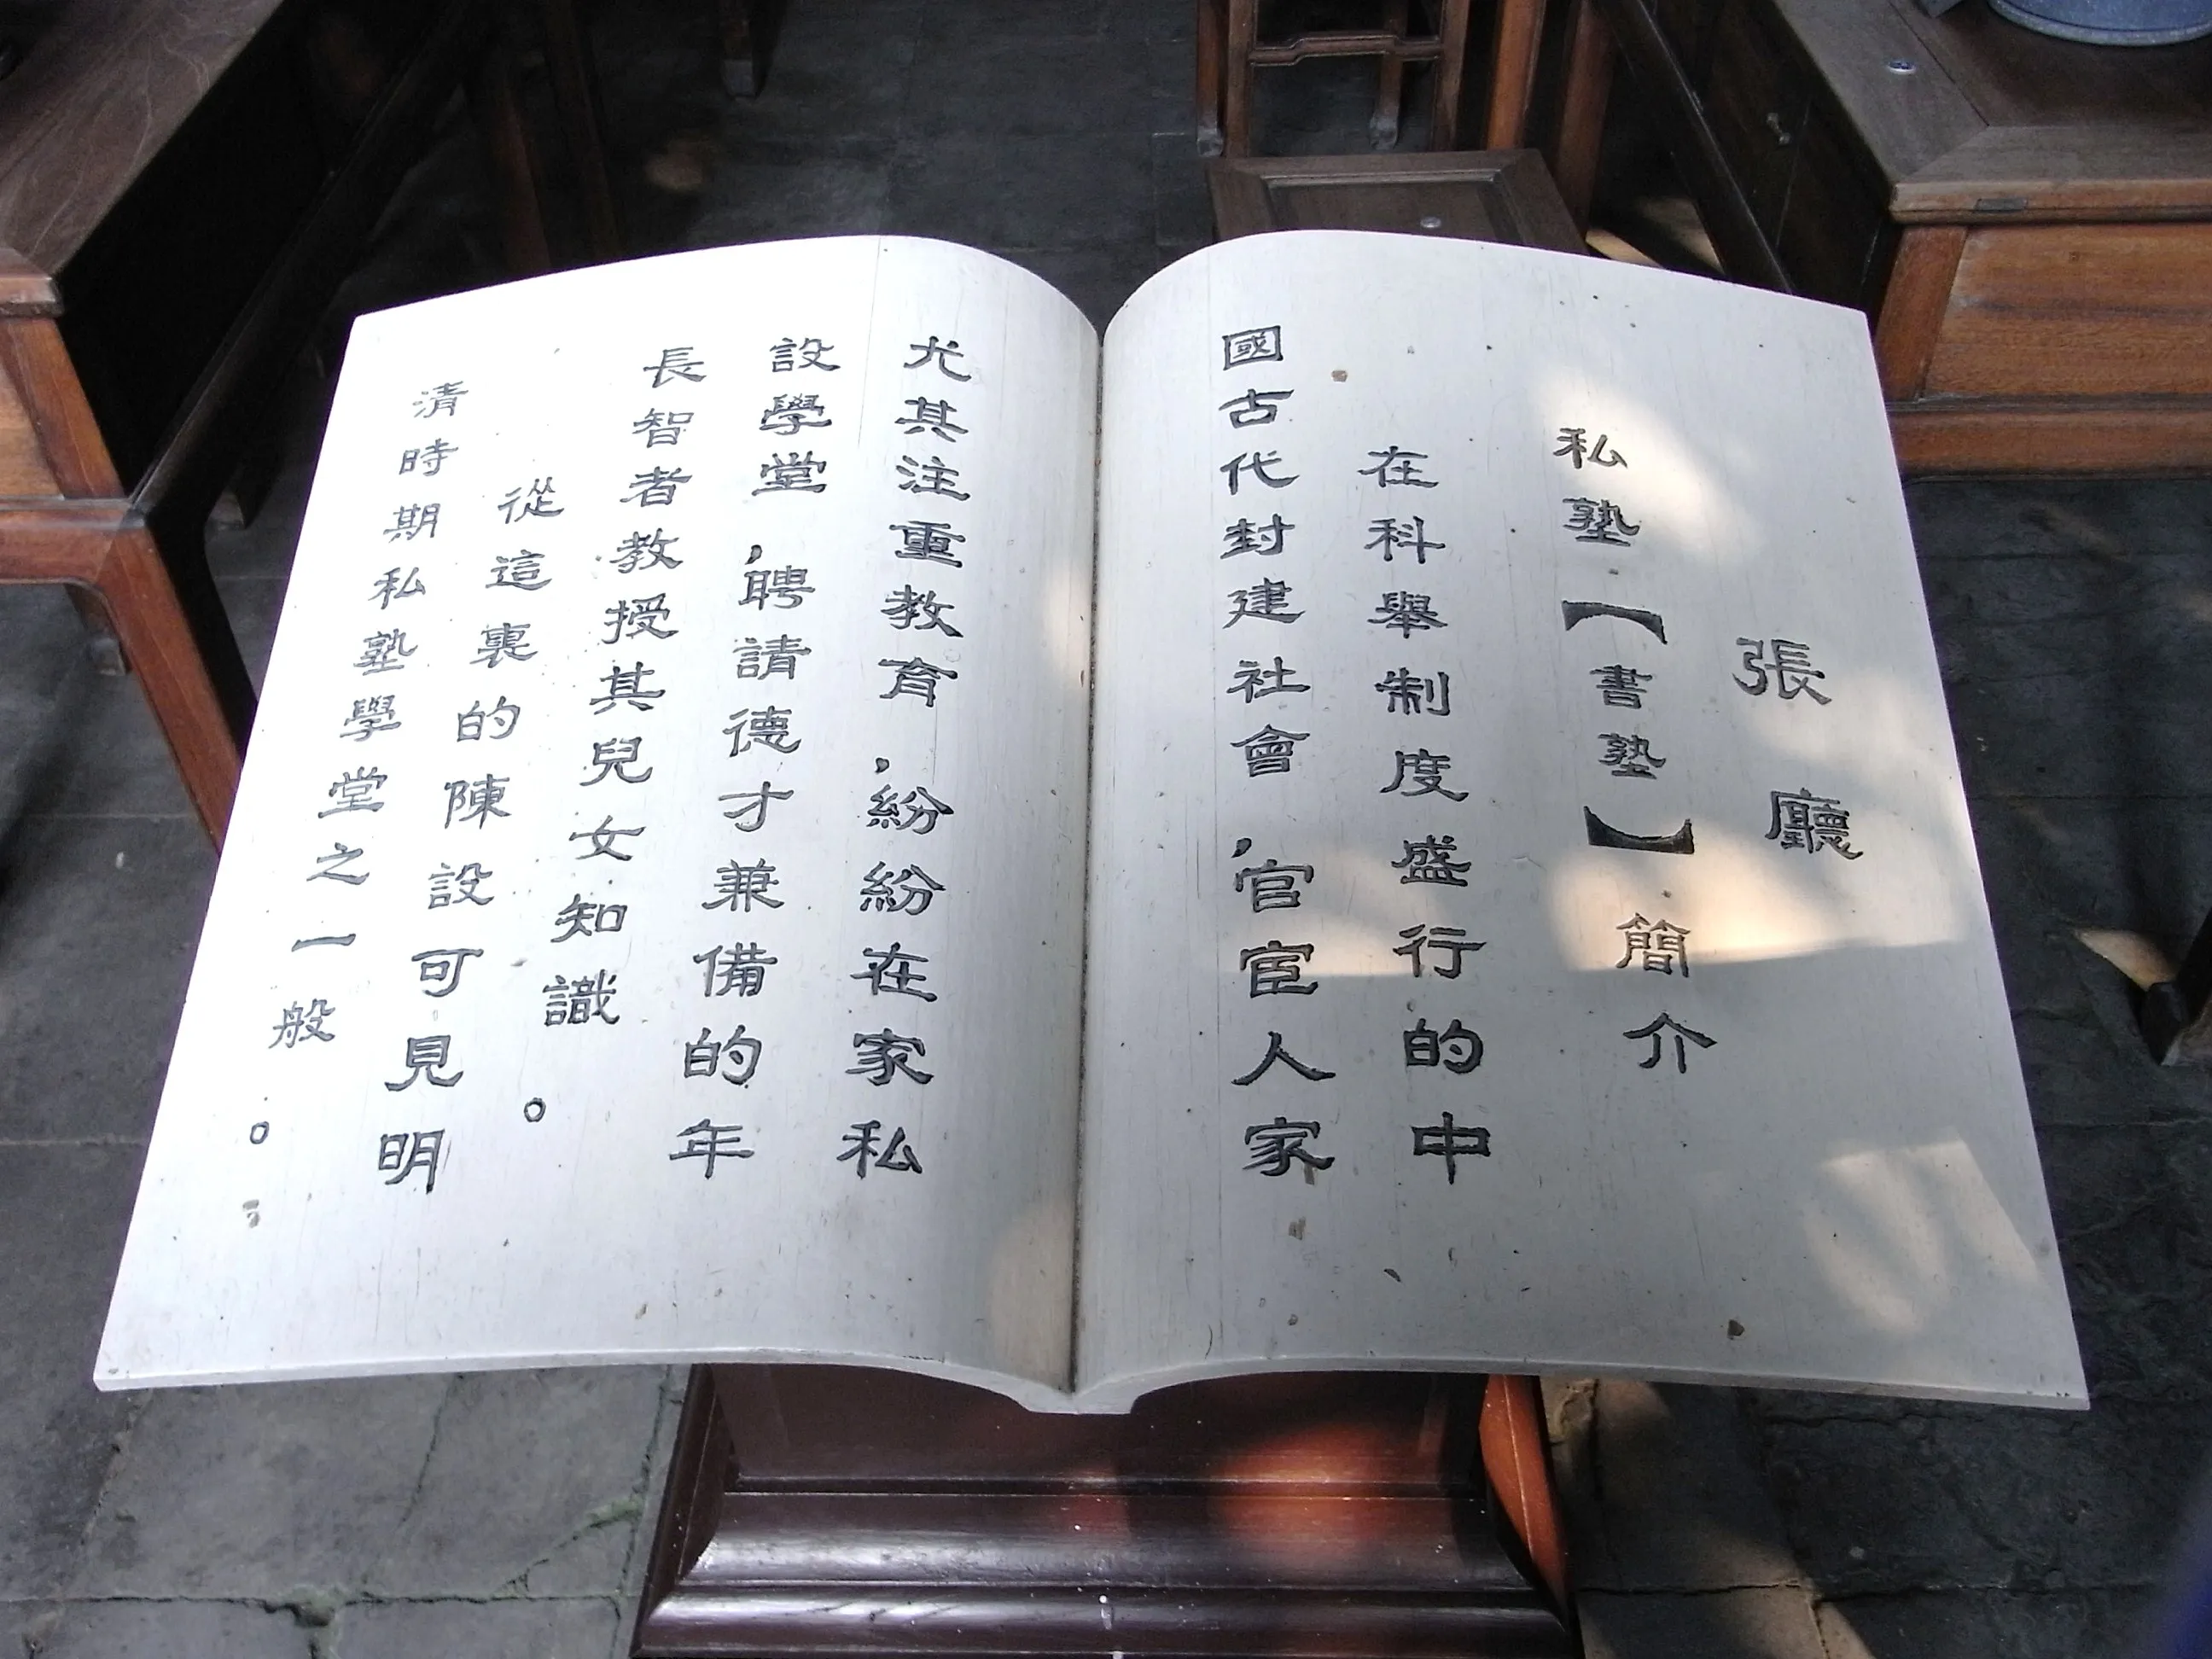 張廳
私塾【書塾】簡介
在科舉制度盛行的中
國古代封建社會,官宦人家
尤其注重教育,紛紛在家私
設學堂,聘請德才兼備的年
長智者教授其兒女知識。
從這裏的陳設可見明
清時期私塾學堂之一般。